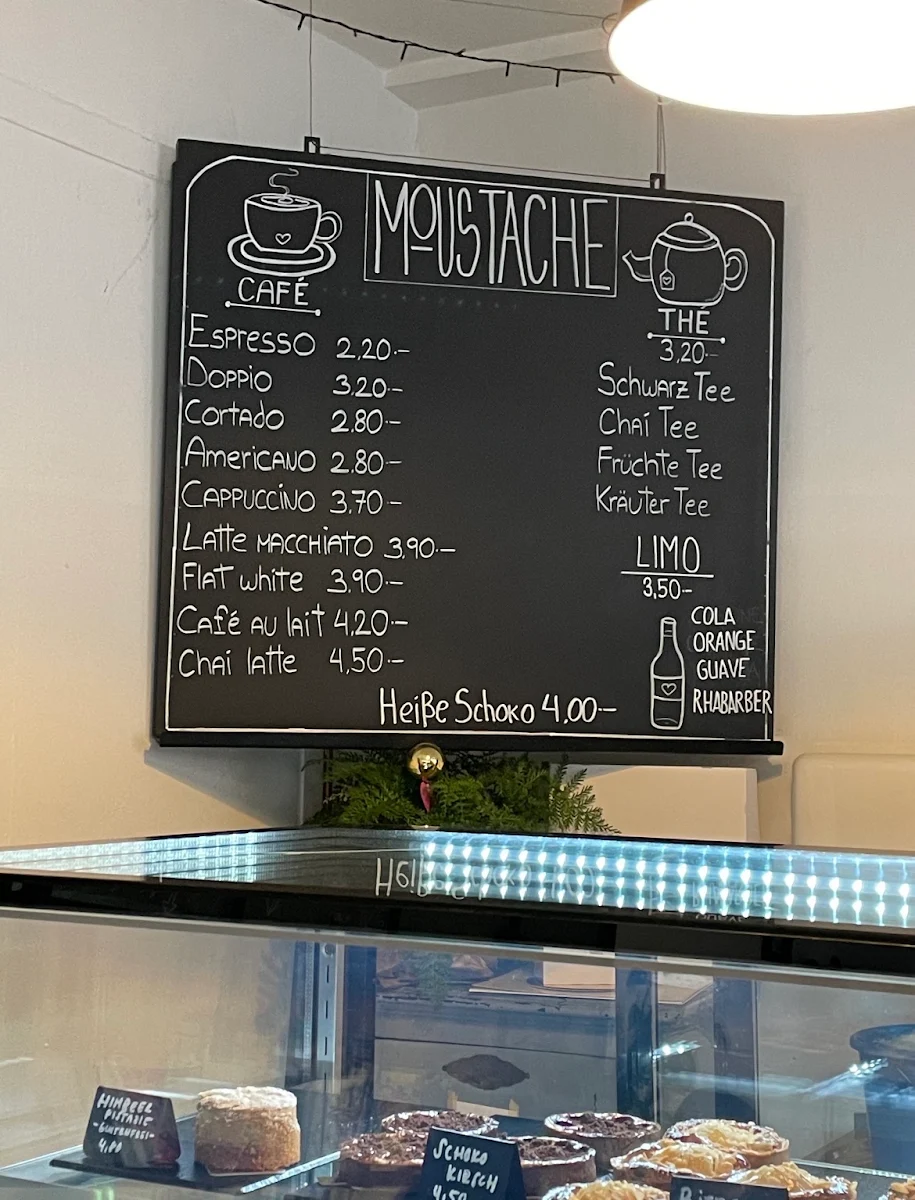 MOUSTACHE
CAFÉ
Espresso 2,20.-
Doppio 3,20.-
Cortado 2.80.-
Americano 2.80.-
Cappuccino 3,70.-
Latte Macchiato 3,90.-
Flat white 3,90.-
Café au lait 4,20.-
Chai latte 4,50.-
Heiße Schoko 4,00.-
THÉ
3,20.-
Schwarz Tee
Chai Tee
Früchte Tee
Kräuter Tee
LIMO
3,50.-
COLA
ORANGE
GUAVE
RHABARBER
PISTAZIE
-GLUTENFREI-
4,00
SCHOKO
KIRSCH
4,50